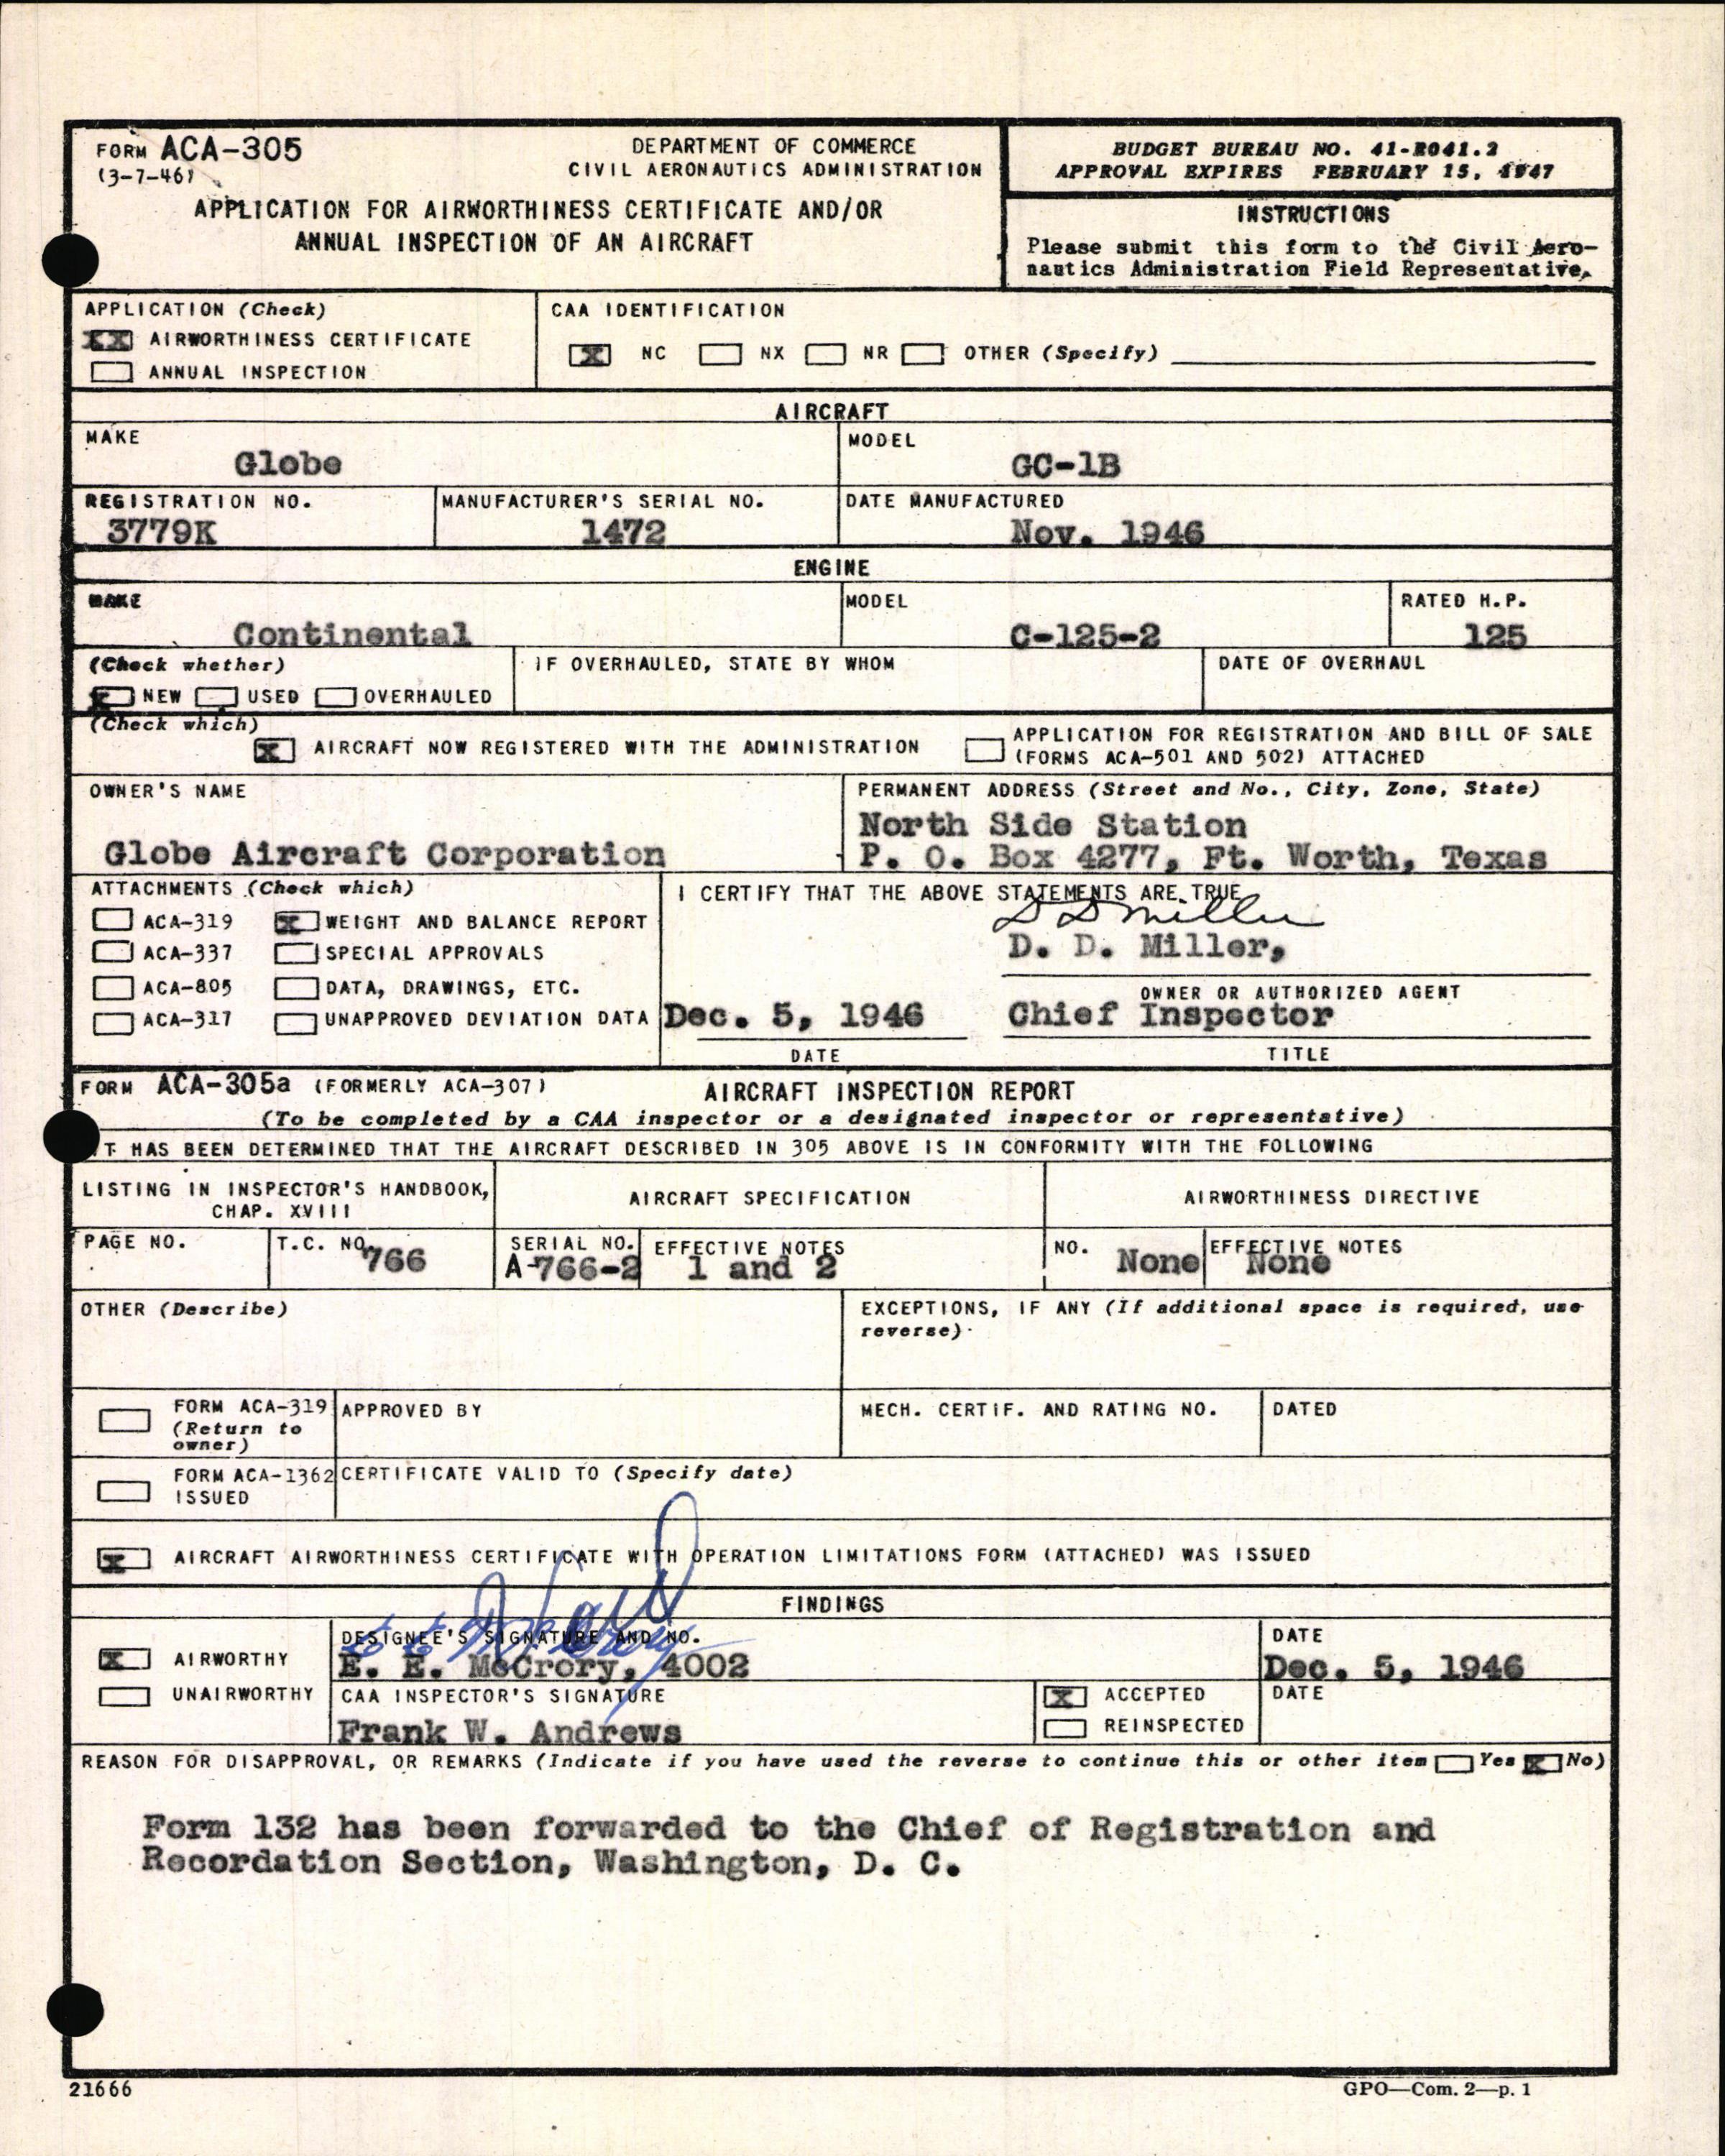 FORM ACA-305
(3-7-46)
DEPARTMENT OF COMMERCE
CIVIL AERONAUTICS ADMINISTRATION
APPLICATION FOR AIRWORTHINESS CERTIFICATE AND/OR
ANNUAL INSPECTION OF AN AIRCRAFT
BUDGET BUREAU NO. 41-R041.2
APPROVAL EXPIRES FEBRUARY 15, 1947
INSTRUCTIONS
Please submit this form to the Civil Aero-
nautics Administration Field Representative.
APPLICATION (Check)
XX AIRWORTHINESS CERTIFICATE
ANNUAL INSPECTION
CAA IDENTIFICATION
X NC NX NR OTHER (Specify)
AIRCRAFT
MAKE
Globe
MODEL
GC-1B
REGISTRATION NO.
3779K
MANUFACTURER'S SERIAL NO.
1472
DATE MANUFACTURED
Nov. 1946
ENGINE
MAKE
Continental
MODEL
C-125-2
RATED H.P.
125
(Check whether)
X NEW USED OVERHAULED
IF OVERHAULED, STATE BY WHOM
DATE OF OVERHAUL
(Check which)
X AIRCRAFT NOW REGISTERED WITH THE ADMINISTRATION
APPLICATION FOR REGISTRATION AND BILL OF SALE
(FORMS ACA-501 AND 502) ATTACHED
OWNER'S NAME
Globe Aircraft Corporation
PERMANENT ADDRESS (Street and No., City, Zone, State)
North Side Station
P. O. Box 4277, Ft. Worth, Texas
ATTACHMENTS (Check which)
ACA-319 X WEIGHT AND BALANCE REPORT
ACA-337 SPECIAL APPROVALS
ACA-805 DATA, DRAWINGS, ETC.
ACA-317 UNAPPROVED DEVIATION DATA
I CERTIFY THAT THE ABOVE STATEMENTS ARE TRUE
D D Miller
D. D. Miller,
OWNER OR AUTHORIZED AGENT
Dec. 5, 1946 Chief Inspector
DATE TITLE
FORM ACA-305a (FORMERLY ACA-307) AIRCRAFT INSPECTION REPORT
(To be completed by a CAA inspector or a designated inspector or representative)
T HAS BEEN DETERMINED THAT THE AIRCRAFT DESCRIBED IN 305 ABOVE IS IN CONFORMITY WITH THE FOLLOWING
LISTING IN INSPECTOR'S HANDBOOK,
CHAP. XVIII
AIRCRAFT SPECIFICATION
AIRWORTHINESS DIRECTIVE
PAGE NO.
T.C. NO.
766
SERIAL NO.
A-766-2
EFFECTIVE NOTES
1 and 2
NO.
None
EFFECTIVE NOTES
None
OTHER (Describe)
EXCEPTIONS, IF ANY (If additional space is required, use
reverse).
FORM ACA-319
(Return to
owner)
APPROVED BY
MECH. CERTIF. AND RATING NO.
DATED
FORM ACA-1362
ISSUED
CERTIFICATE VALID TO (Specify date)
X AIRCRAFT AIRWORTHINESS CERTIFICATE WITH OPERATION LIMITATIONS FORM (ATTACHED) WAS ISSUED
FINDINGS
X AIRWORTHY
UNAIRWORTHY
DESIGNEE'S SIGNATURE AND NO.
E. E. McCrory, 4002
DATE
Dec. 5, 1946
CAA INSPECTOR'S SIGNATURE
Frank W. Andrews
X ACCEPTED
REINSPECTED
DATE
REASON FOR DISAPPROVAL, OR REMARKS (Indicate if you have used the reverse to continue this or other item Yes X No)
Form 132 has been forwarded to the Chief of Registration and
Recordation Section, Washington, D. C.
21666
GPO—Com. 2—p. 1